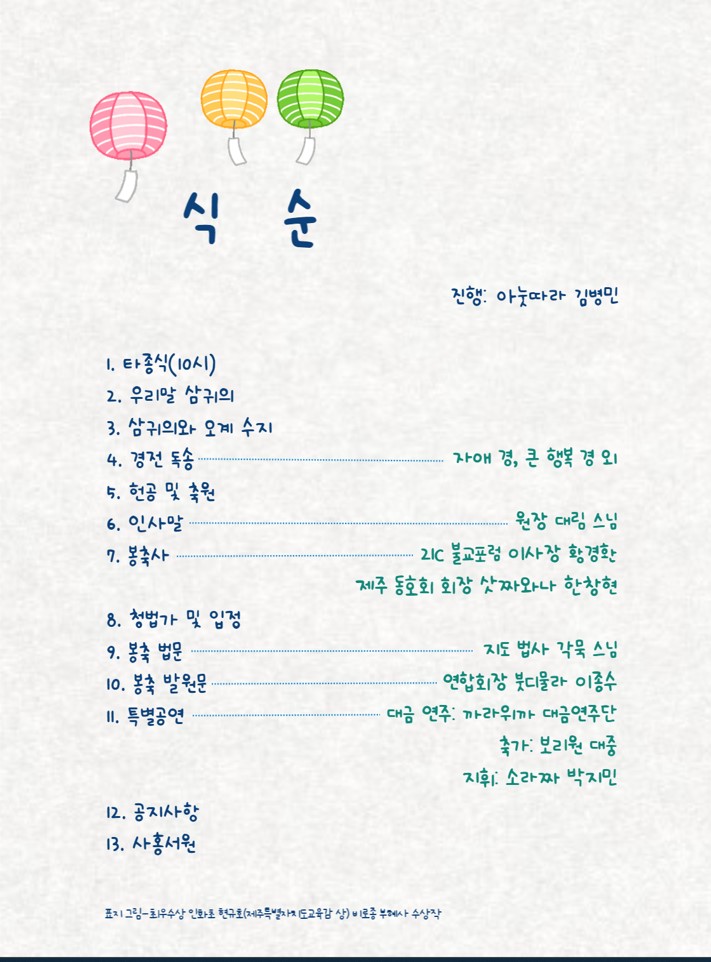 식 순
진행: 아눗따라 김병민
1. 타종식(10시)
2. 우리말 삼귀의
3. 삼귀의와 오계 수지
4. 경전 독송 자애 경, 큰 행복 경 외
5. 헌공 및 축원
6. 인사말 원장 대림 스님
7. 봉축사 21C 불교포럼 이사장 황경환
제주 동호회 회장 삿짜와나 한창현
8. 청법가 및 입정
9. 봉축 법문 지도 법사 각묵 스님
10. 봉축 발원문 연합회장 붓디물라 이종수
11. 특별공연 대금 연주: 까라위까 대금연주단
축가: 보리원 대중
지휘: 소라짜 박지민
12. 공지사항
13. 사홍서원
표지 그림-최우수상 인화초 현규호(제주특별자치도교육감 상) 비로종 부혜사 수상작